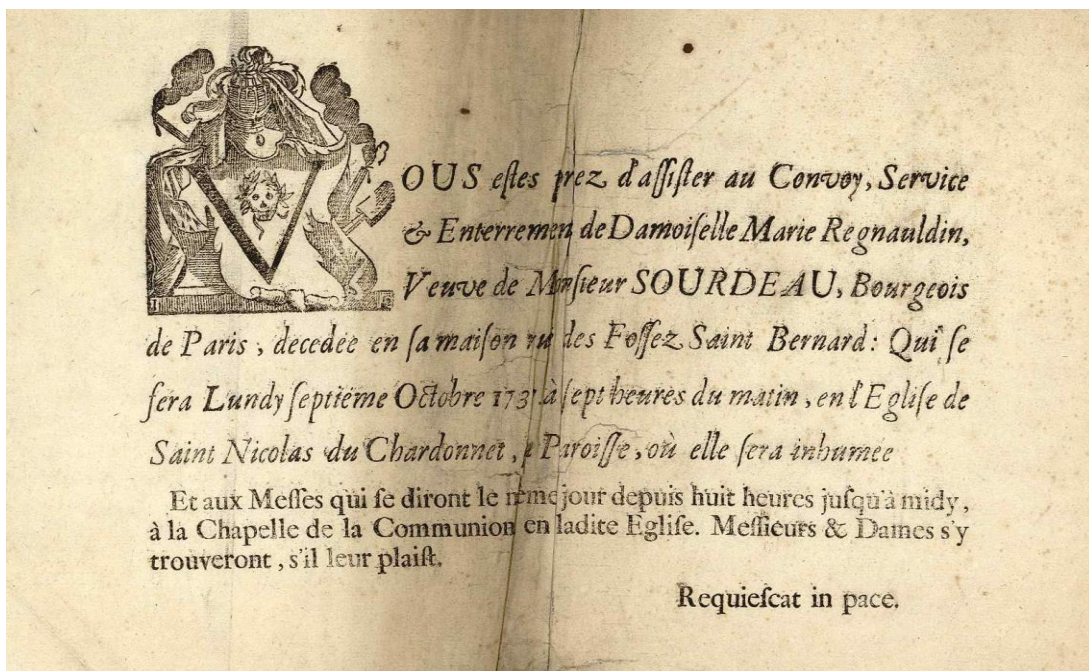 VOUS eſtes prez d'aſſiſter au Convoy, Service
& Enterremen de Damoiſelle Marie Regnauldin,
Veuve de Mnſieur SOURDEAU, Bourgeois
de Paris, decedée en ſa maiſon ru des Foſſez Saint Bernard: Qui ſe
fera Lundy ſeptiéme Octobre à ſept heures du matin, en l'Egliſe de
Saint Nicolas du Chardonnet, Paroiſſe, où elle ſera inhumée
Et aux Meſſes qui ſe diront le même jour depuis huit heures juſqu'à midy,
à la Chapelle de la Communion en ladite Egliſe. Meſſieurs & Dames s'y
trouveront, s'il leur plaiſt.
Requieſcat in pace.